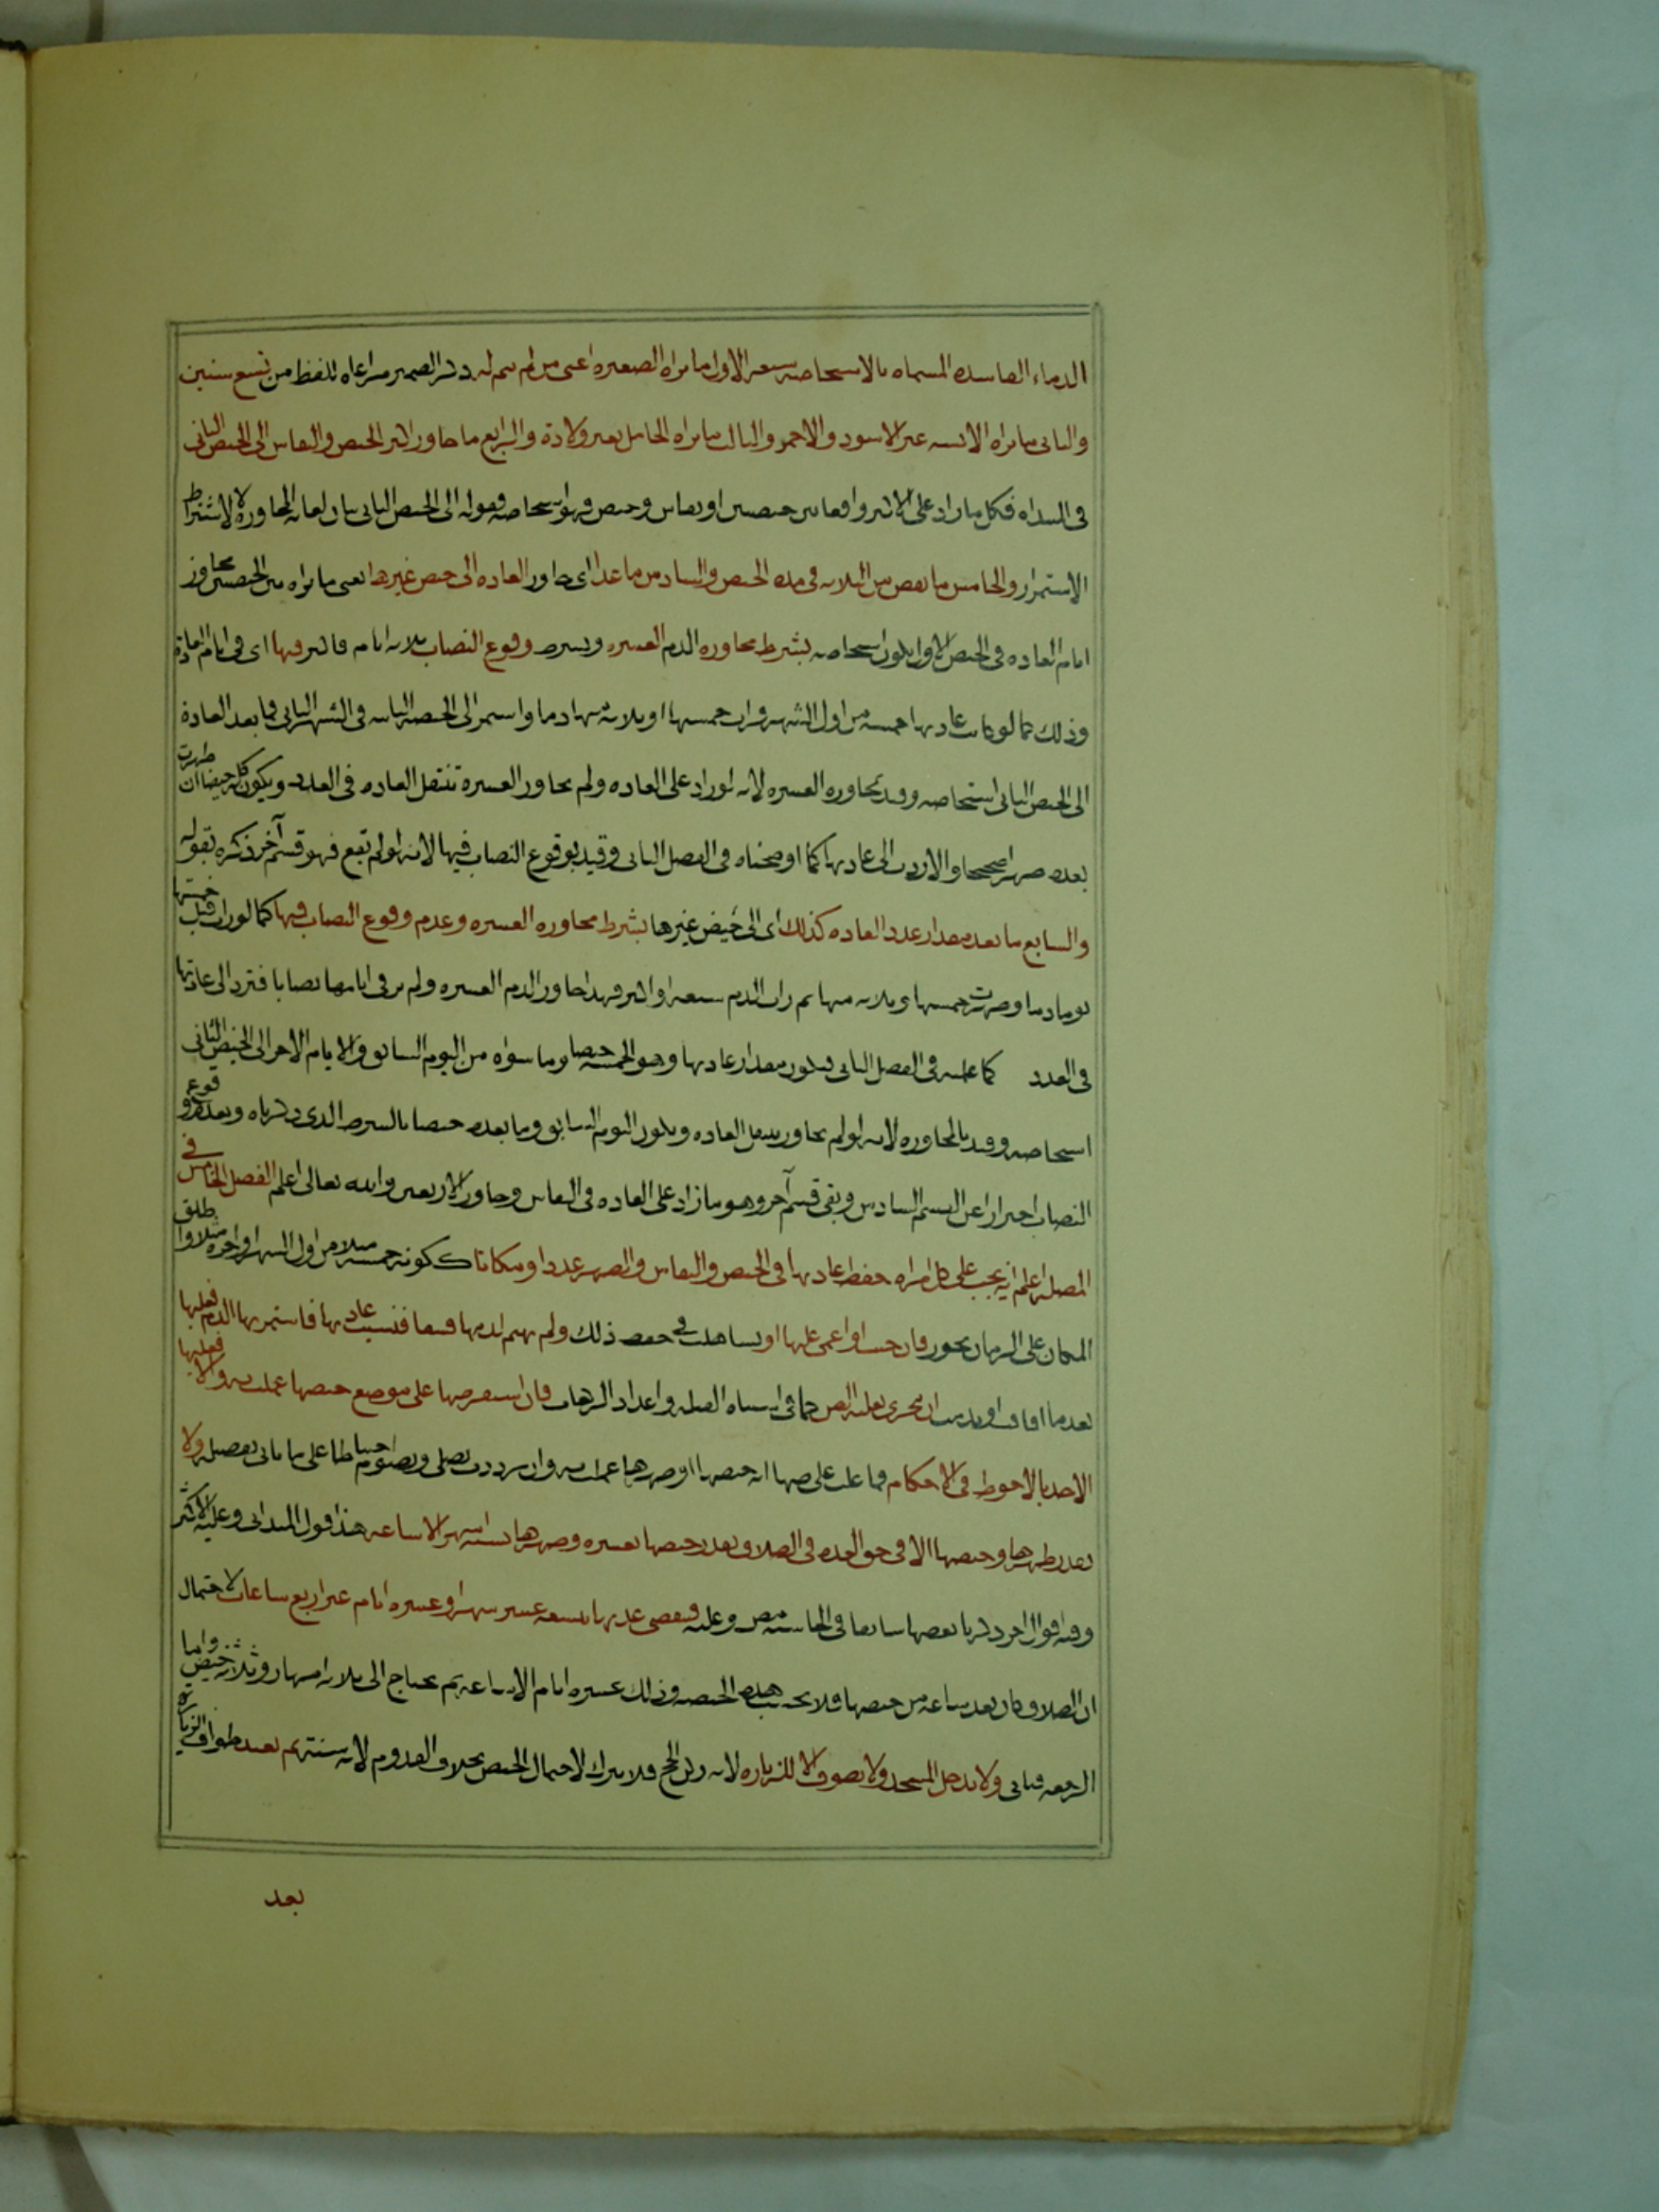 الدماء الفاسدة المسماة بالاستحاضة سبعة الاول ما تراه الصغيرة اعنى من لم يتم له ذكر الضمير مراعاة للفظ من تسع سنين
والثانى ما تراه الآيسة غير الاسود والاحمر والثالث ما تراه الحامل بغير ولادة والرابع ما جاوز اكثر الحيض والنفاس الى الحيض الثانى
فى المبتداه فكل ما زاد على الاكثر واقعا بين حيضين او نفاس وحيض فهو استحاضة وقوله الى الحيض الثانى بيان لغاية المجاوزة لا لاشتراط
الاستمرار والخامس ما نقص من الثلاثة فى مدة الحيض والسادس ما عدا اى جاوز العادة الى حيض غيرها يعنى ما تراه بين الحيضين مجاوز
ايام العادة فى الحيض الاول يكون استحاضة بشرط مجاوزة الدم العشرة وبشرط وقوع النصاب ثلاثة ايام فاكثر فيها اى فى ايام العادة
وذلك كما لو كانت عادتها خمسة من اول الشهر فرات خمستها او ثلاثة منها دما واستمر الى الحيضة الثانية فى الشهر الثانى فما بعد العادة
الى الحيض الثانى استحاضة وقيد بمجاوزة العشرة لانه لو زاد على العادة ولم يجاوز العشرة تنتقل العادة فى العدد ويكون كله حيضا ان طهرت
بعده طهرا صحيحا والا ردت الى عادتها كما اوضحناه فى الفصل الثانى وقيد بوقوع النصاب فيها لانه لو لم تقع فهو قسم آخر ذكره بقوله
والسابع ما بعد مقدار عدد العادة كذلك اى الى حيض غيرها بشرط مجاوزة العشرة وعدم وقوع النصاب فيها كما لو رات قبل خمستها
يوما دما وطهرت خمستها او ثلاثة منها ثم رات الدم سبعة او اكثر فهذا جاوز الدم العشرة ولم تر فى ايامها نصابا فترد الى عادتها
فى العدد كما علمته فى الفصل الثانى فيكون مقدار عادتها وهو الخمسة حيضا وما سواه من اليوم السابق والايام الاخر الى الحيض الثانى
استحاضة وقيد بالمجاوزة لانه لو لم يجاوز ينتقل العادة ويكون اليوم السابق وما بعده حيضا بالشرط الذى ذكرناه وبعدم وقوع
النصاب احترازا عن القسم السادس وبقى قسم آخر وهو ما زاد على العادة فى النفاس وجاوز الاربعين والله تعالى اعلم الفصل الخامس فى
المضلة اعلم انه يجب على كل امراة حفظ عادتها فى الحيض والنفاس والطهر عددا ومكانا ككونه خمسة مثلا من اول الشهر او اخره مثلا واطلق
المكان على الزمان تجوز فان جنت او اغمى عليها او تساهلت فى حفظ ذلك ولم تهتم لدينها فسقا فنسيت عادتها فاستمر بها الدم فعليها
بعد ما افاقت او ندمت ان تتحرى بغلبة الظن كما فى اشتباه القبلة واعداد الركعات فان استقر ظنها على موضع حيضها عملت به والا فعليها
الاخذ بالاحوط فى الاحكام فما غلب على ظنها انه حيضها او طهرها عملت به وان ترددت تصلى وتصوم احتياطا على ما ياتى تفصيله ولا
يقدر طهرها وحيضها الا فى حق العدة فى الطلاق يقدر حيضها بعشرة وطهرها بستة اشهر الا ساعة هذا قول الميدانى وعليه الاكثر
وفيه اقوال اخر ذكرنا بعضها سابقا فى الحاشية وعليه فتنقضى عدتها بتسعة عشر شهرا وعشرة ايام غير اربع ساعات لاحتمال
ان الطلاق كان بعد ساعة من حيضها فلا تحتسب هذه الحيضة وذلك عشرة ايام الا ساعة ثم يحتاج الى ثلاثة اطهار وثلاث حيض واما
الرجعة فتاتى ولا تدخل المسجد ولا تطوف الا للزيارة لانه ركن الحج فلا يترك لاحتمال الحيض بخلاف القدوم لانه سنة ثم تعيد طواف الزيارة
بعد